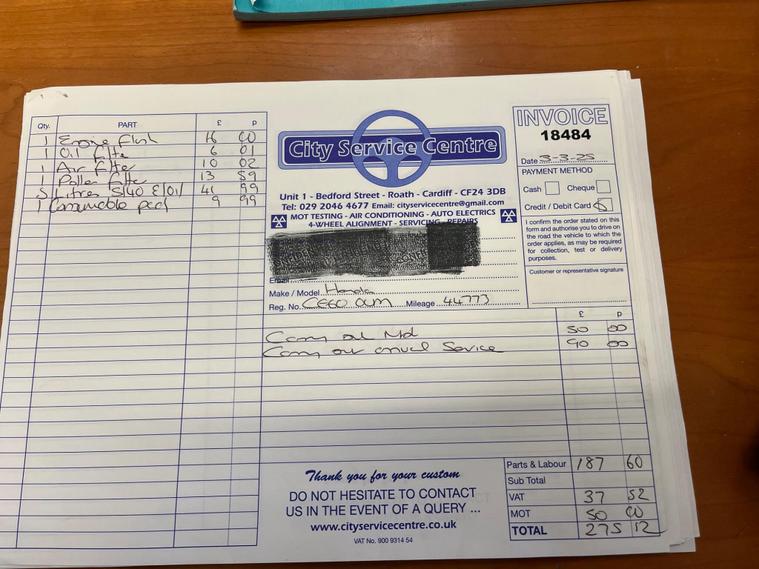 Qty. PART £ P
1 Engine Flush 16 00
1 Oil filter 6 01
1 Air filter 10 02
1 Pollen filter 13 59
5 Litres 5/40 E/Oil 41 99
1 Consumable pack 9 99
City Service Centre
Unit 1 - Bedford Street - Roath - Cardiff - CF24 3DB
Tel: 029 2046 4677 Email: cityservicecentre@gmail.com
MOT TESTING - AIR CONDITIONING - AUTO ELECTRICS
4-WHEEL ALIGNMENT - SERVICING - REPAIRS
Email
Make / Model Honda
Reg. No. CE60 Mileage 44773
INVOICE
18484
Date 3-3-25
PAYMENT METHOD
Cash Cheque
Credit / Debit Card
I confirm the order stated on this
form and authorise you to drive on
the road the vehicle to which the
order applies, as may be required
for collection, test or delivery
purposes.
Customer or representative signature
£ P
Carry out Mot 50 00
Carry out annual Service 90 00
Thank you for your custom
DO NOT HESITATE TO CONTACT
US IN THE EVENT OF A QUERY ...
www.cityservicecentre.co.uk
VAT No. 900 9314 54
Parts & Labour 187 60
Sub Total
VAT 37 52
MOT 50 00
TOTAL 275 12